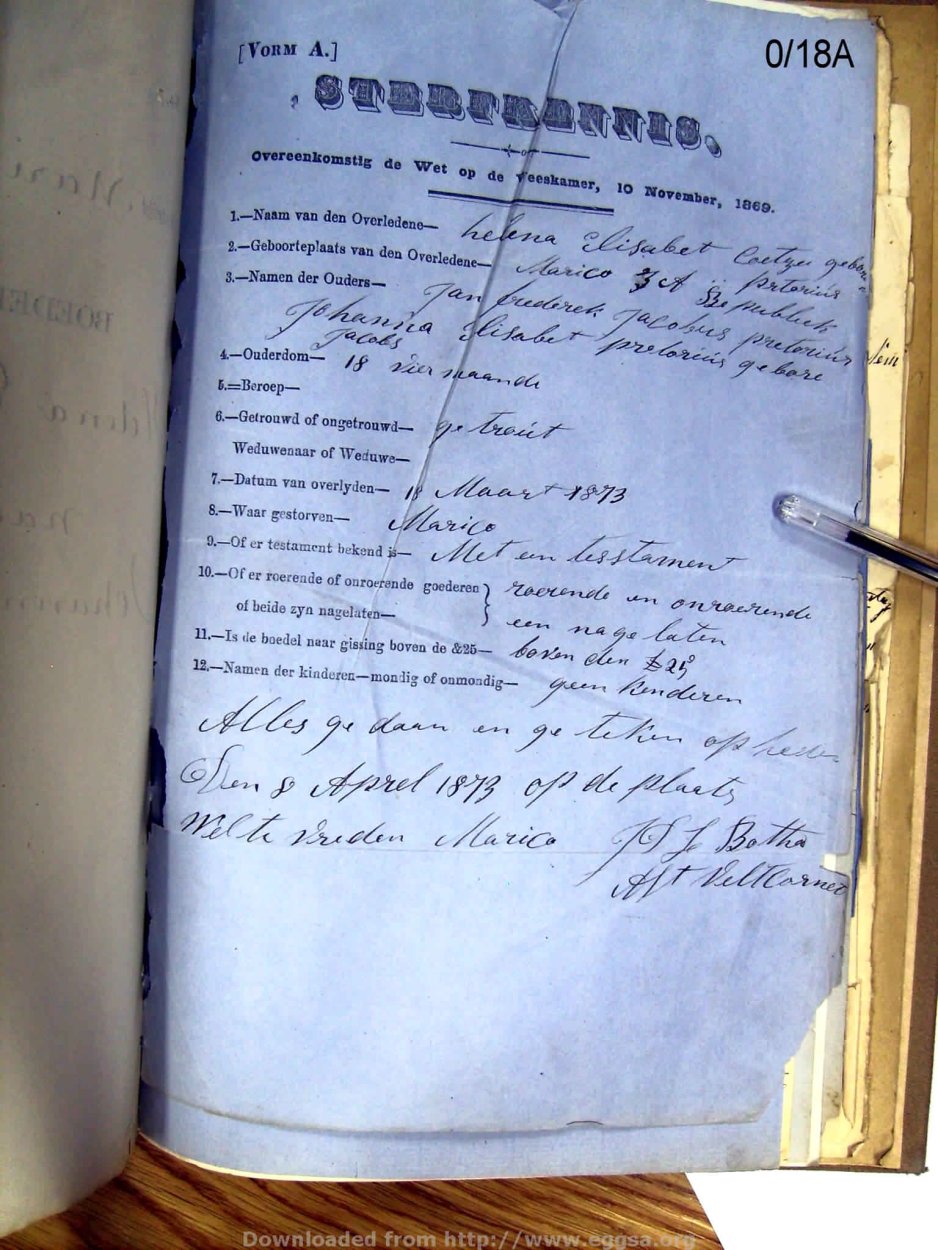 [VORM A.]
0/18A
STERFKENNIS.
Overeenkomstig de Wet op de Weeskamer, 10 November, 1869.
1.—Naam van den Overledene— helena Elisabet Coetzee gebore
pretorius
2.—Geboorteplaats van den Overledene— Marico Z A Republiek
3.—Namen der Ouders— Jan frederek Jacobus pretorius
Johanna Elisabet pretorius gebore
Jacobs
4.—Ouderdom— 18 vier maande
5.=Beroep—
6.—Getrouwd of ongetrouwd— getrout
Weduwenaar of Weduwe—
7.—Datum van overlyden— Maart 1873
8.—Waar gestorven— Marico
9.—Of er testament bekend is— Met een tesstament
10.—Of er roerende of onroerende goederen } roerende en onroerende
of beide zyn nagelaten— een nage laten
11.—Is de boedel naar gissing boven de &25— boven den £25
12.—Namen der kinderen—mondig of onmondig— geen kenderen
Alles ge daan en ge teken op heden
Den 8 Aprel 1873 op de plaats
Wel te vreden Marico Botha
Ast Veltcornet
Downloaded from http://www.eggsa.org